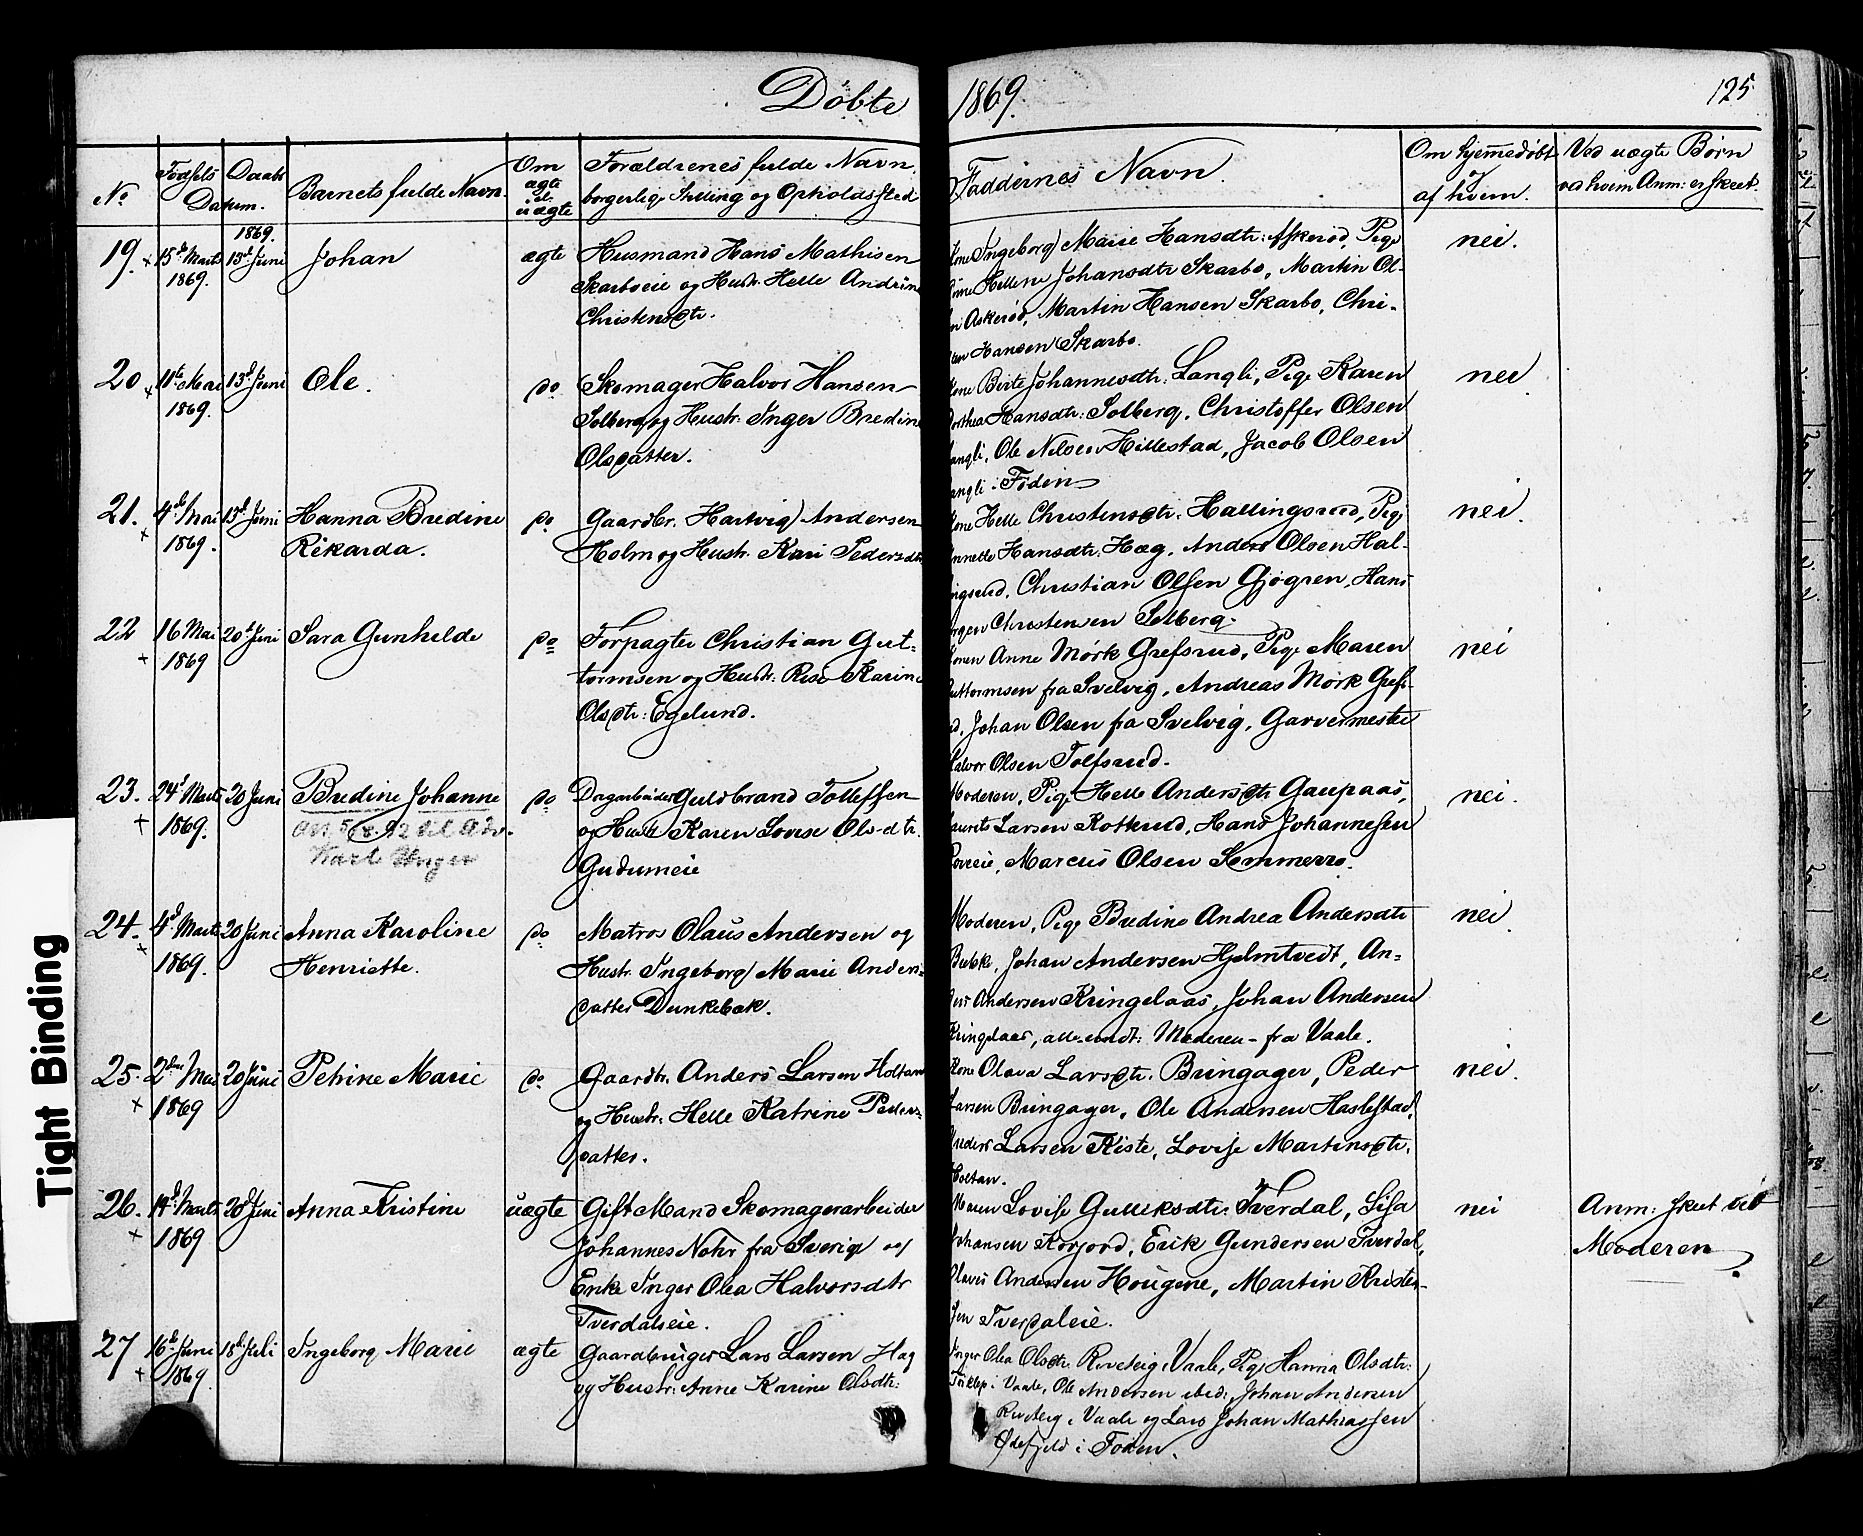 Døbte 1869. 125
No
Fødsels Daabs
Datum.
Barnets fulde Navn.
Om
ægte
el.
uægte
Forældrenes fulde Navn,
borgerlige Stilling og Opholdssted
Faddernes Navn.
Om hjemmedøbt
og
af hvem.
Ved uægte Børn
ved hvem Anm: er skeet.
1869.
19. 15de Marts 13de Juni Johan ægte Husmand Hans Mathisen
1869. Skarboeie og Hustr. Helle Andrine
Christensdtr.
Kone Ingeborg Marie Hansdtr: Askerød, Pige
Hellene Johansdtr Skarbo, Martin Ol-
Askerød, Martin Hansen Skarbo, Chri-
Hansen Skarbo.
nei.
20 11te Mai 13de Juni Ole. do Skomager Halvor Hansen
1869. Solberg og Hustr: Inger Bredine
Olsdatter.
Kone Berte Johannesdtr: Langli, Pige Karen
Dorthea Hansdtr: Solberg, Christoffer Olsen
Langli, Ole Nilsen Hillestad, Jacob Olsen
Langli - Foden
nei.
21. 4de Mai 13de Juni Hanna Bredine do Gaardbr. Hartvig Andersen
1869. Rikarda. Holm og Hustr. Kari Pedersdtr
Kone Helle Christensdtr. Hallingsrud, Pige
Annette Hansdtr. Hæg, Anders Olsen Hal-
ingsrud, Christian Olsen Gjøgren, Hans
Jørgen Christensen Solberg.
nei.
22 16 Mai 20de Juni Sara Gunhilde do Forpagter Christian Gut-
1869 tormsen og Hustr: Karine
Olsdtr: Egelund.
Konen Anne Mørk Grefsrud, Pige Maren
Guttormsen fra Svelvig, Andreas Mørk Grefs-
rud, Johan Olsen fra Svelvig, Garvermester
Halvor Olsen Tolfsrud.
nei
23. 24de Marts 20 Juni Bredine Johanne do Dagarbeider Guldbrand Tollefsen
1869. og Hustr Karen Lovise Ols-dtr.
Gudumeie
Karl Unger
Moderen, Pige Helle Andersdtr Gaupaas,
Laurits Larsen Rotterud, Hans Johannesen
Marcus Olsen Sommerro.
nei.
24. 4de Marts 20 Juni Anna Karoline do Matros Olaus Andersen og
1869. Henriette. Hustr. Ingeborg Marie Anders-
datter Dunkebæk.
Moderen, Pige Bredine Andrea Andersdtr
Johan Andersen Hjelmtvedt, An-
ders Andersen Kringelaas, Johan Andersen
Kringelaas, alle undt: Moderen - fra Vaale.
nei.
25. 2den Mai 20 Juni Petrine Marie do Gaardbr. Anders Larsen Holtan
1869 og Hustr. Helle Katrine Peders-
datter.
Kone Olava Larsdtr. Bringager, Peder
Larsen Bringager, Ole Andersen Haslestad,
Anders Larsen Kiste, Lovise Martinsdtr.
Holtan.
nei.
26. 14de Marts 20de Juni Anna Kristine uægte Gift Mand Skomagerarbeider
1869 Johannes Nohr fra Sverige og
Enke Inger Olea Halvorsdtr
Tverdalseie.
Maren Lovise Gulliksdtr. Tverdal, Lisa
Johansen Korsjord, Erik Gundersen Tverdal,
Olaves Andersen Hougene, Martin Kristen-
sen Tverdaleie.
nei
Anm: skeet ved
Moderen.
27 16de Juni 18de Juli Ingeborg Marie ægte Gaardbruger Lars Larsen Hag
1869 og Hustr: Anne Karine Olsdtr:
Inger Olea Olsdtr: Vaale, Pige Hanna Olsdtr:
i Vaale, Ole Andersen ibid: Johan Andersen
i Vaale og Lars Johan Mathiassen
Ødefjeld i Foden.
Tight Binding